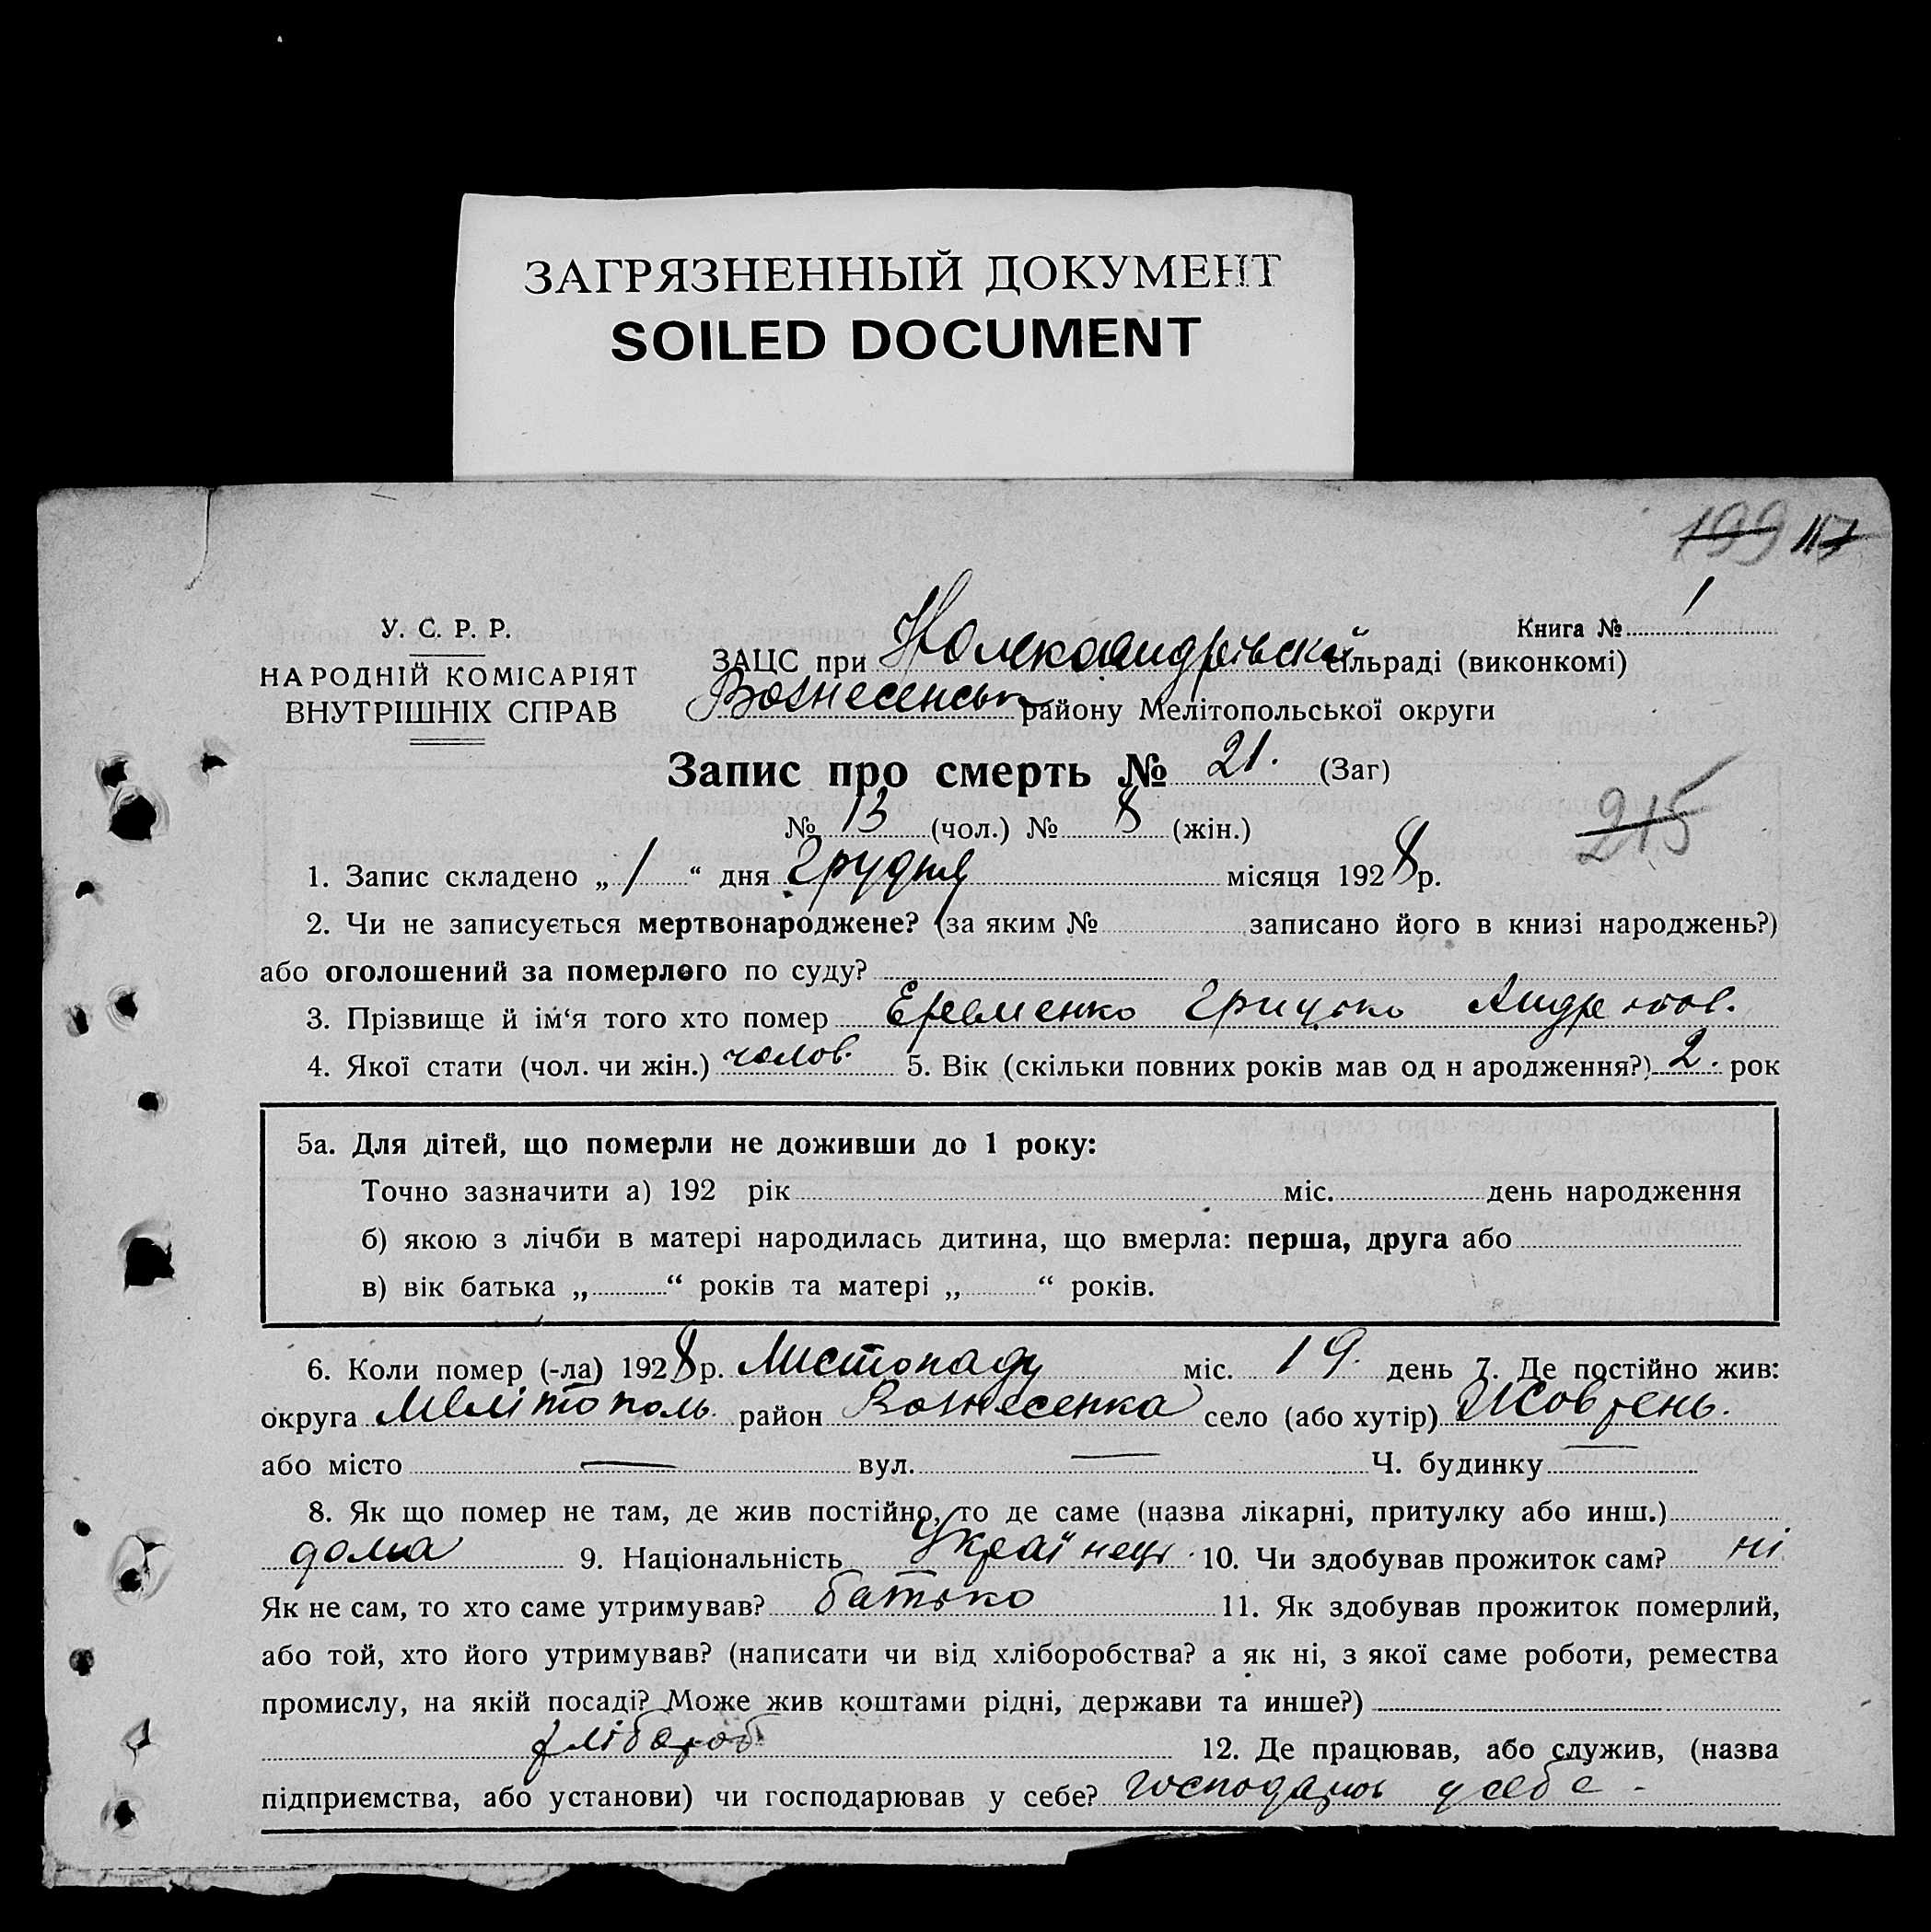 ЗАГРЯЗНЕННЫЙ ДОКУМЕНТ
SOILED DOCUMENT
199 117
У. С. Р. Р.
НАРОДНІЙ КОМІСАРІЯТ
ВНУТРІШНІХ СПРАВ
Книга № 1
ЗАЦС при Нолександрівській сільраді (виконкомі)
Вознесенськ району Мелітопольської округи
Запис про смерть № 21. (Заг)
№ 13 (чол.) № 8 (жін.)
215
1. Запис складено „ 1 “ дня Грудня місяця 1928 р.
2. Чи не записується мертвонароджене? (за яким № записано його в книзі народжень?)
або оголошений за померлого по суду?
3. Прізвище й ім‘я того хто помер Еременко Грицько Андреюов.
4. Якої стати (чол. чи жін.) чолов. 5. Вік (скільки повних років мав од н ародження?) 2. рок
5а. Для дітей, що померли не доживши до 1 року:
Точно зазначити а) 192 рік міс. день народження
б) якою з лічби в матері народилась дитина, що вмерла: перша, друга або
в) вік батька „ “ років та матері „ “ років.
6. Коли помер (-ла) 1928 р. Листопаду міс. 19. день 7. Де постійно жив:
округа Мелітополь. район Вознесенка село (або хутір) Жовтень.
або місто — вул. — Ч. будинку —
8. Як що помер не там, де жив постійно, то де саме (назва лікарні, притулку або инш.)
дома 9. Національність Українець. 10. Чи здобував прожиток сам? ні
Як не сам, то хто саме утримував? батько 11. Як здобував прожиток померлий,
або той, хто його утримував? (написати чи від хліборобства? а як ні, з якої саме роботи, ремества
промислу, на якій посаді? Може жив коштами рідні, держави та инше?)
хлібороб 12. Де працював, або служив, (назва
підприємства, або установи) чи господарював у себе? господарюв у себе -